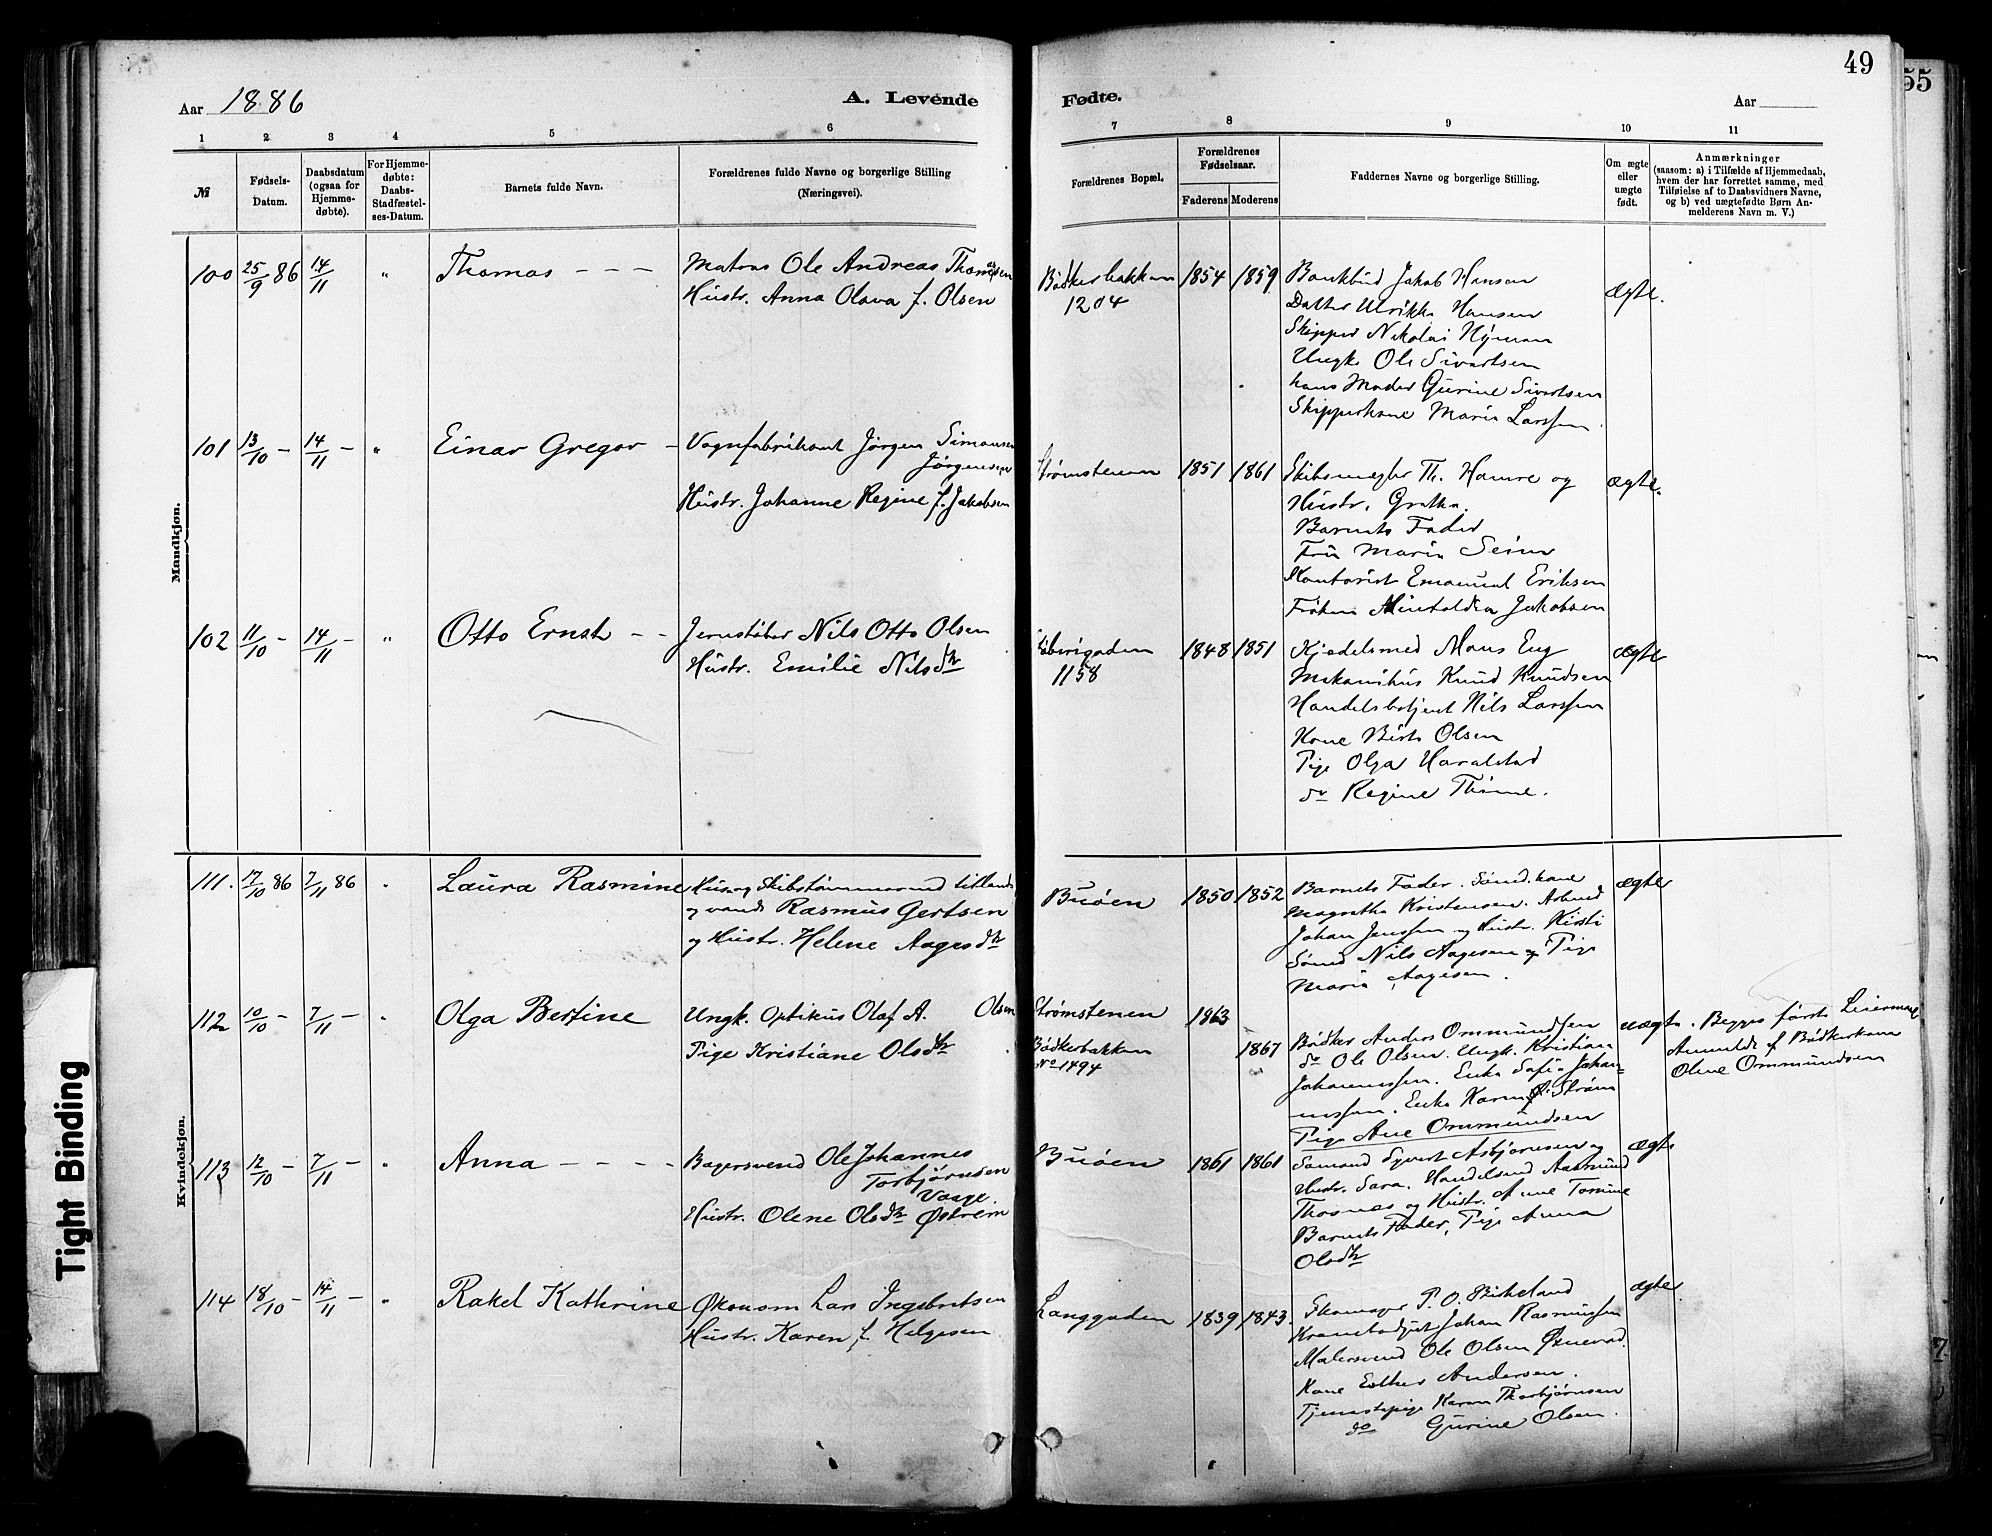 49
55
Aar 1886
A. Levende
Fødte.
Aar
1 2 3 4 5 6 7 8 9 10 11
№
Fødsels-
Datum.
Daabsdatum
(ogsaa for
Hjemme-
døbte).
For Hjemme-
døbte:
Daabs-
Stadfæstel-
ses-Datum.
Barnets fulde Navn.
Forældrenes fulde Navne og borgerlige Stilling
(Næringsvei).
Forældrenes Bopæl.
Forældrenes
Fødselsaar.
Faderens Moderens
Faddernes Navne og borgerlige Stilling.
Om ægte
eller
uægte
født.
Anmærkninger
(saasom: a) i Tilfælde af Hjemmedaab,
hvem der har forrettet samme, med
Tilføielse af to Daabsvidners Navne,
og b) ved uægtefødte Børn An-
melderens Navn m. V.)
Mandkjøn.
100 25/9 86 14/11 " Thomas - - -
Matros Ole Andreas Thomassen
Hustr. Anna Olava f. Olsen
Bødkerbakken
1204
1854 1859
Bankbud Jakob Hansen
Datter Ulrikke Hansen
Skipper Nikolai Nyman
Ungk Ole Sivertsen
hans Moder Gurine Sivertsen
Skipperkone Maria Larssen
ægte.
101 13/10 - 14/11 - " Einar Gregor -
Vognfabrikant Jørgen Simonsen
Jørgensen
Hustr. Johanne Regine f. Jakobsen
Strømstenen
1851 1861
Skibsmægler Th. Hamre og
Hustr. Grethe.
Barnets Fader
Fru Maria
Kontorist Emanuel Eriksen
Frøken Jakobsen
ægte.
102 11/10 - 14/11 - " Otto Ernst - -
Jernstøber Nils Otto Olsen
Hustr. Emilie Nilsdtr
1158
1848 1851
Kjedelsmed Mons Eng
Mekanikus Knud Knudsen
Handelsbetjent Nils Larssen
Kone Olsen
Pige Olga Haralstad
do Regine Thime.
ægte
Kvindekjøn.
111. 17/10 86 7/11 86 " Laura Rasmine
Hus og Skibstømmermand
Rasmus Gertsen
og Hustr. Helene Aagesdtr
Buøen
1850 1852
Barnets Fader. Sømd. kone
Magrethe Kristensen. Arbmd
Johan Jenssen og Hustr. Kirsti
Sømd Nils Aagesen og Pige
Maria Aagesen.
ægte
112 10/10 - 7/11 - " Olga Bertine
Ungk. Optikus Olaf A. Olsen
Pige Kristiane Olsdtr
Strømstenen
Bødkerbakken
No 1494
1863
1867
Bødker Anders Ommundsen
do Ole Olsen. Ungk. Kristian
Johannessen. Enke Sofie Johan-
nessen. Enke Karen Strøm
Pige Ane Ommundsen
uægte.
Begges første Leiermaal
Anmeldt af Bødkerkone
Oline Ommundsen
113 12/10 - 7/11 - " Anna - - - -
Bagersvend Ole Johannes
Torbjørnsen
Vaage.
Hustr. Olene Olsdtr Østrem
Buøen
1861 1861
Sømand Syvert Asbjørnsen og
Hustr. Sara. Handelsmd Aamund
Thosnes og Hustr. Anne Tomine
Barnets Fader, Pige Anna
Olsdtr
ægte
114 18/10 - 14/11 - " Rakel Kathrine
Økonom Lars Ingebritsen
Hustr. Karen f. Helgesen
Langgaden
1839 1843.
Skomager P. O. Birkeland
Johan Rasmussen
Malersvend Ole Olsen
Kone Esther Andersen.
Tjenestepige Karen Thorbjørnsen
do Gurine Olsen.
ægte.
Tight Binding